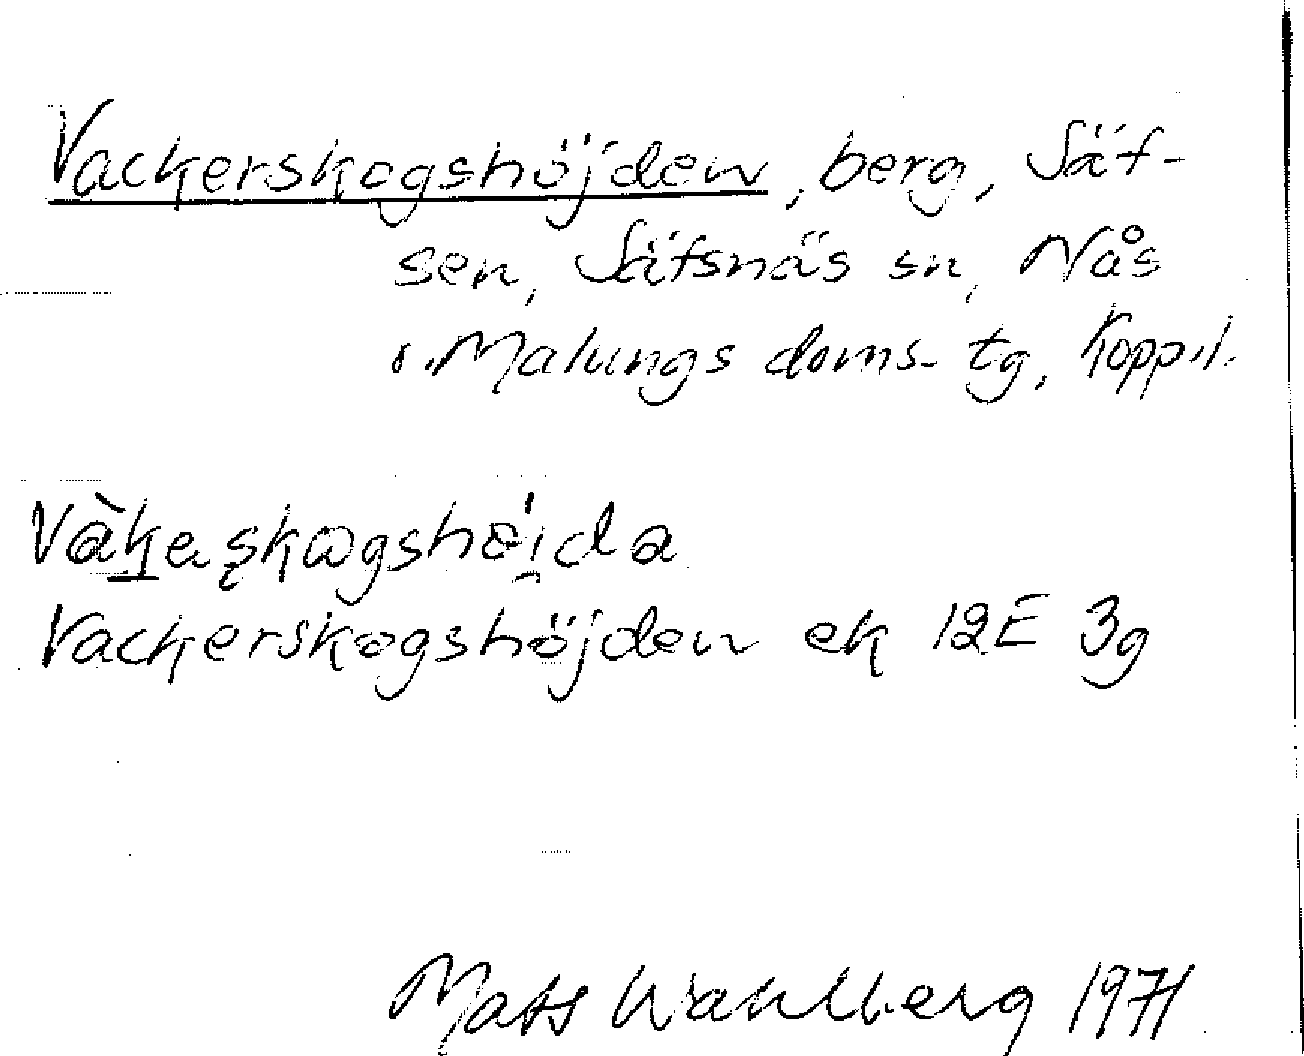 Vackerskogshöjden, berg, Säf-
sen, Säfsnäs sn, Nås
o. Malungs doms. tg, Kopp. l.
Vàkeskogshöjda
Vackerskogshöjden ek 12E 3g
Mats Wahlberg 1971